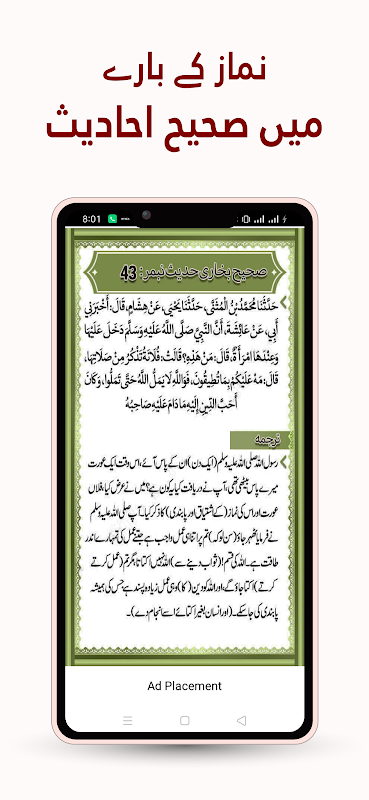 نماز کے بارے
میں صحیح احادیث
8:01
صحیح بخاری حدیث نمبر: 43
حَدَّثَنَا مُحَمَّدُ بْنُ الْمُثَنَّى، حَدَّثَنَا يَحْيَى، عَنْ هِشَامٍ، قَالَ: أَخْبَرَنِي
أَبِي، عَنْ عَائِشَةَ، أَنَّ النَّبِيَّ صَلَّى اللَّهُ عَلَيْهِ وَسَلَّمَ دَخَلَ عَلَيْهَا
وَعِنْدَهَا امْرَأَةٌ، قَالَ: مَنْ هَذِهِ؟ قَالَتْ: فُلَانَةُ تَذْكُرُ مِنْ صَلَاتِهَا،
قَالَ: مَهْ عَلَيْكُمْ بِمَا تُطِيقُونَ، فَوَاللَّهِ لَا يَمَلُّ اللَّهُ حَتَّى تَمَلُّوا، وَكَانَ
أَحَبَّ الدِّينِ إِلَيْهِ مَا دَامَ عَلَيْهِ صَاحِبُهُ
ترجمہ
رسول اللہ صلی اللہ علیہ وسلم (ایک دن) ان کے پاس آئے، اس وقت ایک عورت
میرے پاس بیٹھی تھی، آپ نے دریافت کیا یہ کون ہے؟ میں نے عرض کیا، فلاں
عورت اور اس کی نماز (کے اشتیاق اور پابندی) کا ذکر کیا۔ آپ صلی اللہ علیہ وسلم
نے فرمایا ٹھہر جاؤ (سن لو کہ) تم پر اتنا ہی عمل واجب ہے جتنے عمل کی تمہارے اندر
طاقت ہے۔ اللہ کی قسم! (ثواب دینے سے) اللہ نہیں اکتاتا مگر تم (عمل کرتے
کرتے) اکتا جاؤ گے، اور اللہ کو دین (کا) وہی عمل زیادہ پسند ہے جس کی ہمیشہ
پابندی کی جا سکے۔ (اور انسان بغیر اکتائے اسے انجام دے)۔
Ad Placement